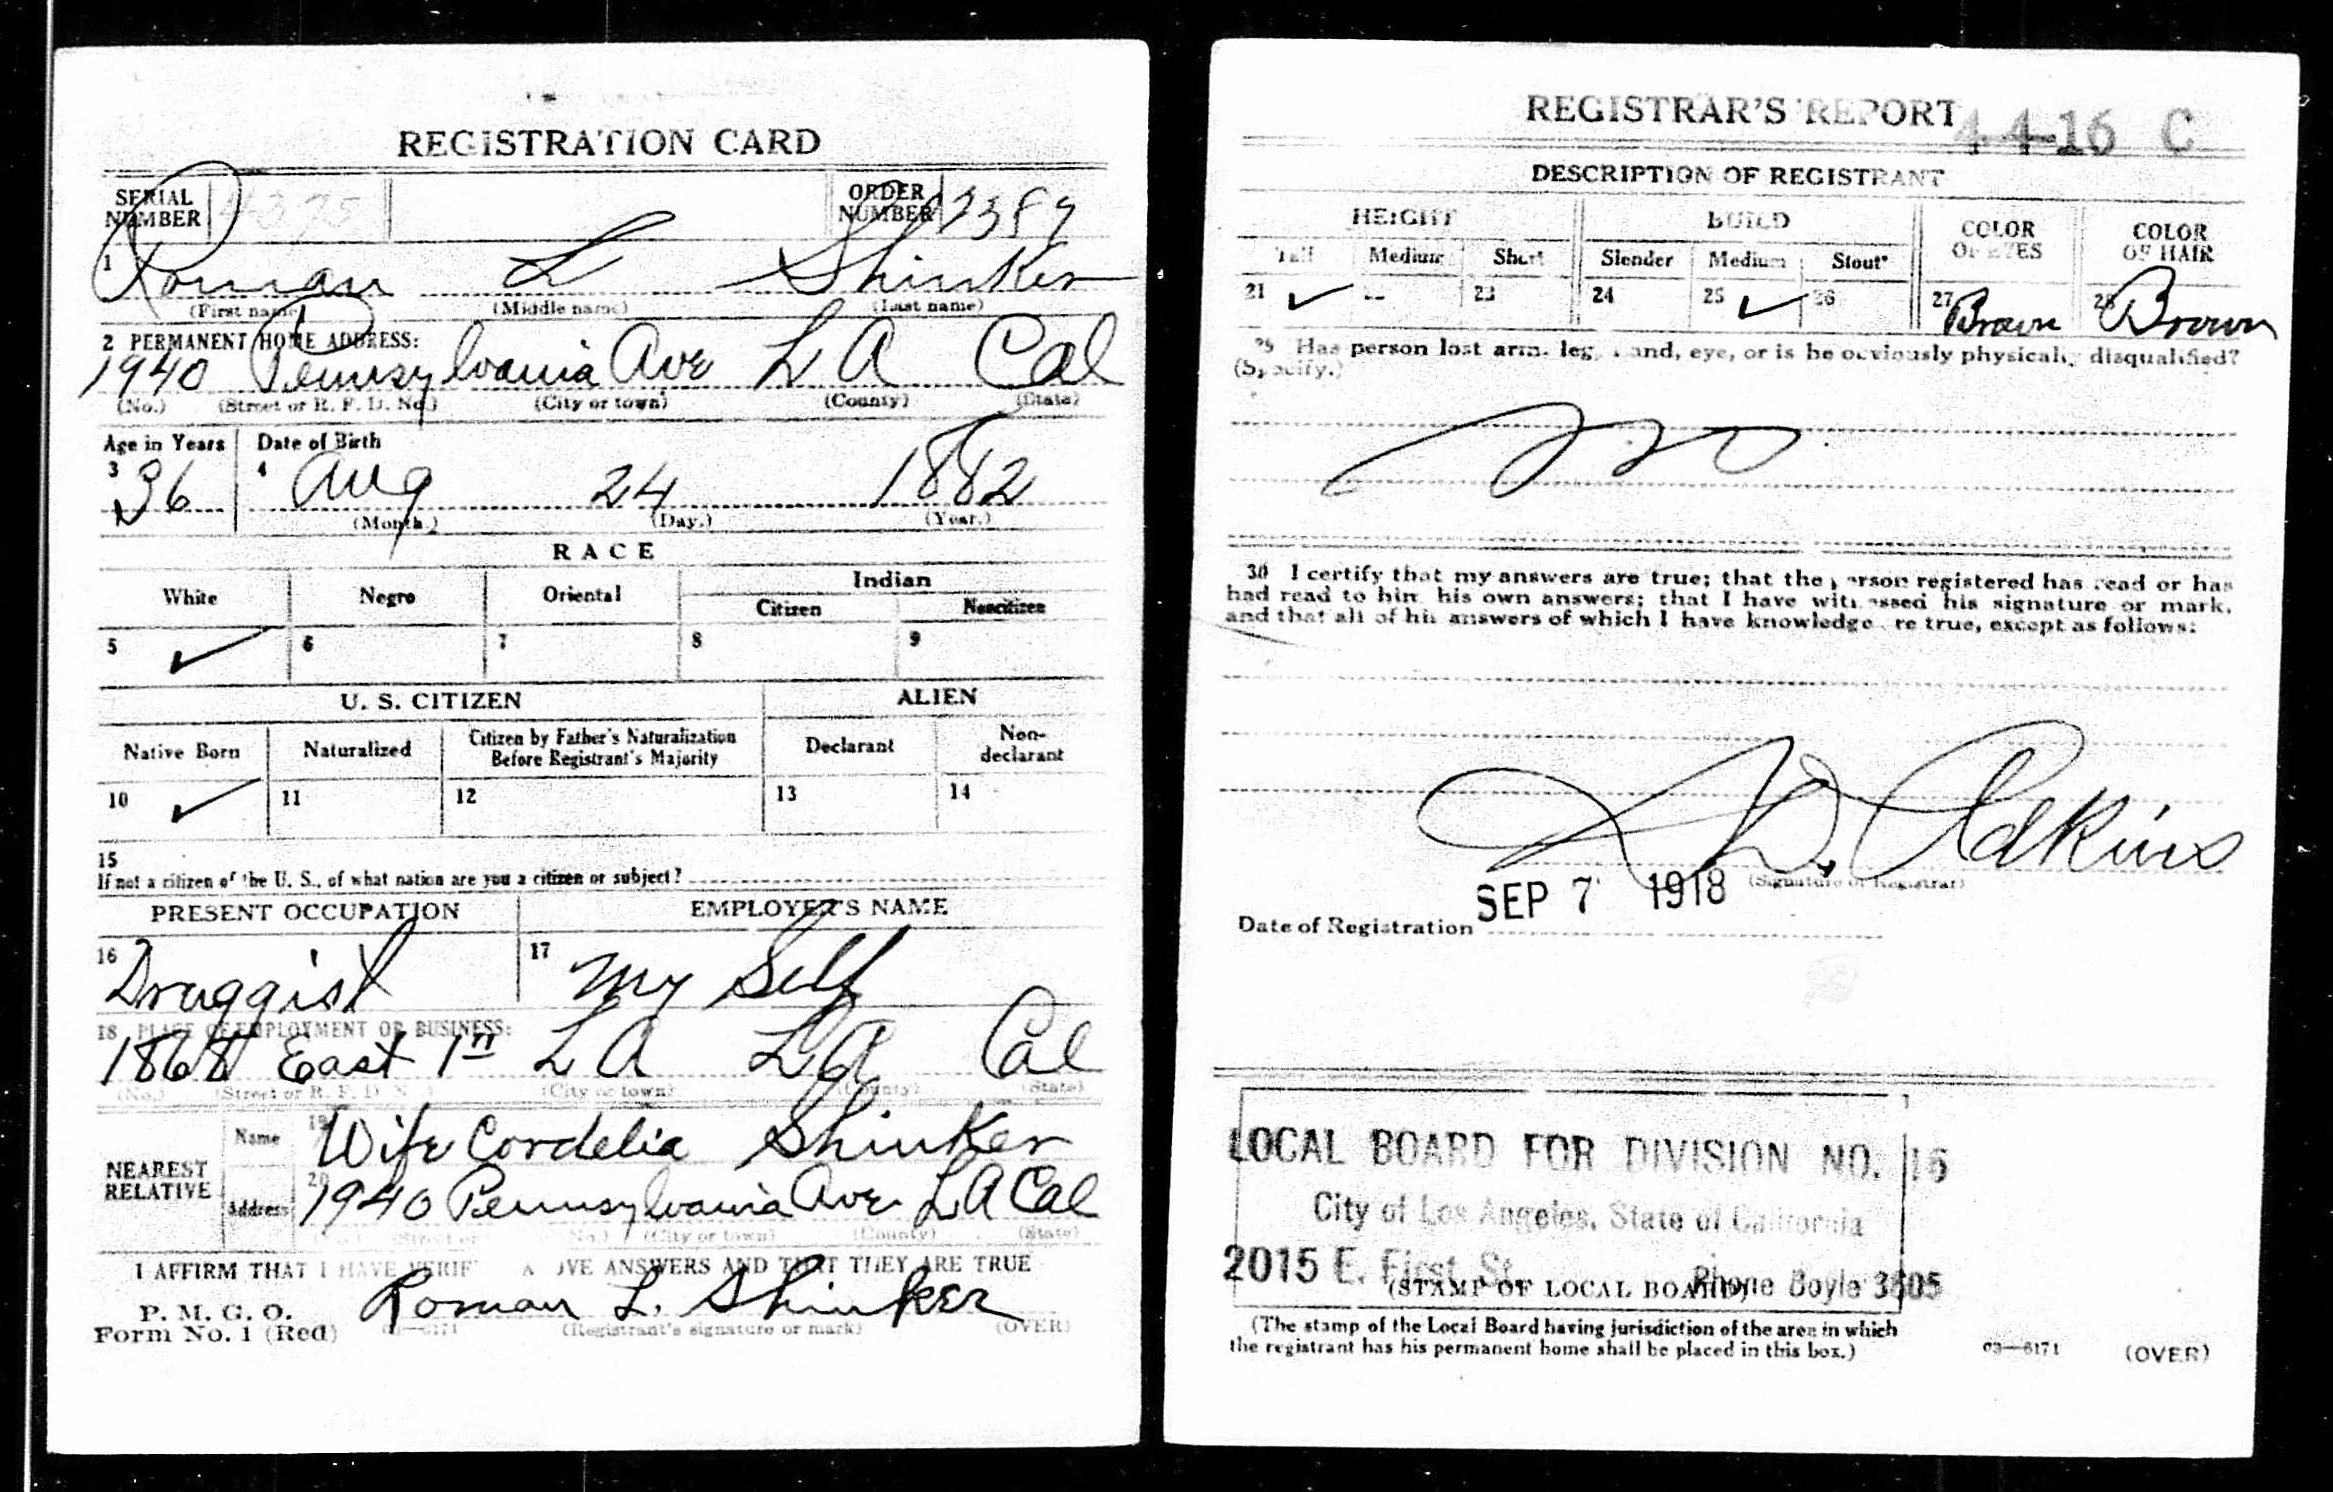 REGISTRATION CARD
SERIAL NUMBER 4375 ORDER NUMBER
1 Roman L Shinker
(First name) (Middle name) (Last name)
2 PERMANENT HOME ADDRESS:
1940 Pennsylvania Ave L A Cal
(No.) (Street or R. F. D. No.) (City or town) (County) (State)
Age in Years Date of Birth
3 36 4 Aug 24 1882
(Month.) (Day.) (Year.)
RACE
White Negro Oriental Indian
Citizen Noncitizen
5 ✓ 6 7 8 9
U. S. CITIZEN ALIEN
Native Born Naturalized Citizen by Father's Naturalization Before Registrant's Majority Declarant Non-declarant
10 ✓ 11 12 13 14
15
If not a citizen of the U. S., of what nation are you a citizen or subject?
PRESENT OCCUPATION EMPLOYER'S NAME
16 Druggist 17 My Self
18 PLACE OF EMPLOYMENT OR BUSINESS:
East 1st L A L A Cal
(No.) (Street or R. F. D. No.) (City or town) (County) (State)
NEAREST RELATIVE
Name 19 Wife Cordelia Shinker
Address 20 1940 Pennsylvania Ave L A Cal
(City or town) (County) (State)
I AFFIRM THAT I HAVE VERIF A OVE ANSWERS AND THAT THEY ARE TRUE
P. M. G. O.
Form No. 1 (Red) Roman L. Shinker
(Registrant's signature or mark) (OVER)
REGISTRAR'S REPORT 4-4-16 C
DESCRIPTION OF REGISTRANT
HEIGHT BUILD COLOR OF EYES COLOR OF HAIR
Tall Medium Short Slender Medium Stout
21 ✓ 23 24 25 ✓ 26 27 Brown 28 Brown
29 Has person lost arm, leg, hand, eye, or is he obviously physically disqualified?
(Specify.)
no
30 I certify that my answers are true; that the person registered has read or has
had read to him his own answers; that I have witnessed his signature or mark,
and that all of his answers of which I have knowledge are true, except as follows:
D. Adkins
(Signature of Registrar)
Date of Registration SEP 7 1918
LOCAL BOARD FOR DIVISION NO. 16
City of Los Angeles, State of California
2015 E. First St. Phone Boyle 3605
(STAMP OF LOCAL BOARD)
(The stamp of the Local Board having jurisdiction of the area in which
the registrant has his permanent home shall be placed in this box.)
03—6171 (OVER)